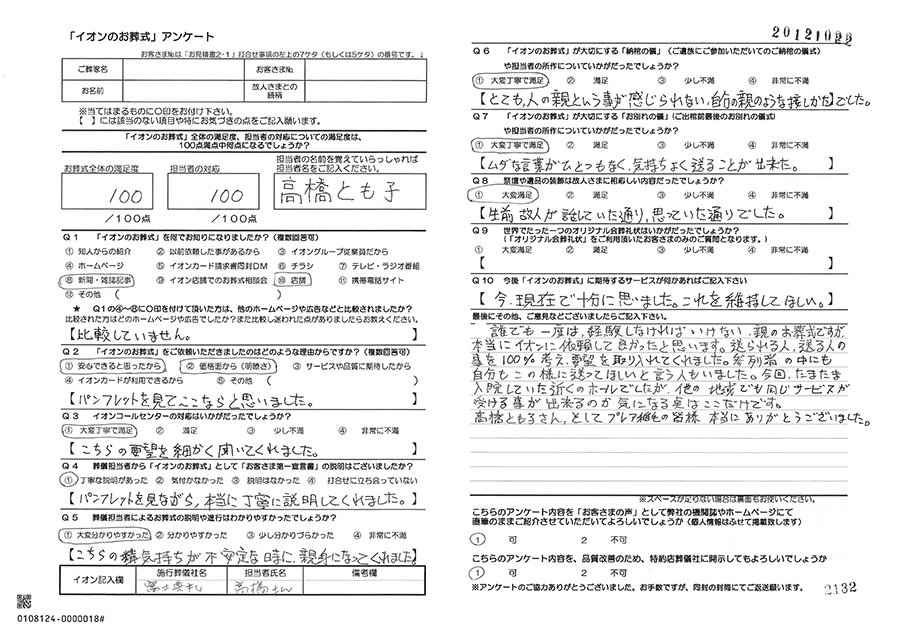 「イオンのお葬式」アンケート
お客さま№は「お見積書2-1」打合せ事項の左上の7ケタ(もしくは5ケタ)の番号です。↓
ご葬家名
お客さま№
お名前
故人さまとの続柄
※当てはまるものに○印をお付け下さい。
【 】には該当のない項目や特にお気づきの点をご記入願います。
「イオンのお葬式」全体の満足度、担当者の対応についての満足度は、
100点満点中何点になるでしょうか?
お葬式全体の満足度
担当者の対応
担当者の名前を覚えていらっしゃれば
担当者名をご記入ください。
100
100
高橋とも子
/100点
/100点
Q1 「イオンのお葬式」を何でお知りになりましたか?(複数回答可)
① 知人からの紹介 ② 以前依頼した事があるから ③ イオングループ従業員だから
④ ホームページ ⑤ イオンカード請求書同封DM ⑥ チラシ ⑦ テレビ・ラジオ番組
⑧ 新聞・雑誌記事 ⑨ イオン店舗でのお葬式相談会 ⑩ 店舗 ⑪ 携帯電話サイト
⑫ その他 ( )
★ Q1の④~⑧に○印を付けて頂いた方は、他のホームページや広告などと比較されましたか?
比較された方はどのホームページや広告でしたか?また比較し迷われた点がありましたらお教えください。
【比較していません。 】
Q2 「イオンのお葬式」をご依頼いただきましたのはどのような理由からですか?(複数回答可)
① 安心できると思ったから ② 価格面から(明瞭さ) ③ サービスや品質に期待したから
④ イオンカードが利用できるから ⑤ その他 ( )
【パンフレットを見てここならと思いました。 】
Q3 イオンコールセンターの対応はいかがだったでしょうか?
① 大変丁寧で満足 ② 満足 ③ 少し不満 ④ 非常に不満
【こちらの要望を細かく聞いてくれました。 】
Q4 葬儀担当者から「イオンのお葬式」として「お客さま第一宣言書」の説明はございましたか?
① 丁寧な説明があった ② 気付かなかった ③ 説明はなかった ④ 打合せに立ち会っていない
【パンフレットを見ながら、本当に丁寧に説明してくれました。】
Q5 葬儀担当者によるお葬式の説明や進行はわかりやすかったでしょうか?
① 大変分かりやすかった ② 分かりやすかった ③ 少し分かりづらかった ④ 非常に不満
【こちらの気持ちが不安定な時に、親身になってくれました】
イオン記入欄
施行葬儀社名
担当者氏名
備考欄
高橋さん
0108124-0000018#
20121022
Q6 「イオンのお葬式」が大切にする「納棺の儀」(ご遺族にご参加いただいてのご納棺の儀式)
や担当者の所作についていかがだったでしょうか?
① 大変丁寧で満足 ② 満足 ③ 少し不満 ④ 非常に不満
【とても、人の親という事が感じられない、自分の親のような接しかた】でした。
Q7 「イオンのお葬式」が大切にする「お別れの儀」(ご出棺前最後のお別れの儀式)
や担当者の所作についていかがだったでしょうか?
① 大変丁寧で満足 ② 満足 ③ 少し不満 ④ 非常に不満
【ムダな言葉がひとつもなく、気持ちよく送ることが出来た。 】
Q8 祭壇や遺品の装飾は故人さまに相応しい内容だったでしょうか?
① 大変満足 ② 満足 ③ 少し不満 ④ 非常に不満
【生前故人が話していた通り、思っていた通りでした。 】
Q9 世界でたった一つのオリジナル会葬礼状はいかがだったでしょうか?
(「オリジナル会葬礼状」をご利用頂いたお客さまのみのご質問となります。)
① 大変満足 ② 満足 ③ 少し不満 ④ 非常に不満
【 】
Q10 今後「イオンのお葬式」に期待するサービスが何かあればご記入下さい
【今、現在で十分に思いました。これを維持してほしい。 】
最後にその他、ご意見などございましたらご記入下さい。
誰でも一度は、経験しなければいけない、親のお葬式ですが、
本当にイオンに依頼して良かったと思います。送られる人、送る人の
事を100%考え、要望を取り入れてくれました。参列者の中にも
自分もこの様に送ってほしいと言う人もいました。今回、たまたま
入院していた近くのホールでしたが、他の地域でも同じサービスが
受ける事が出来るのか気になる点はここだけです。
高橋ともさん、そしてプレア稲毛の皆様本当にありがとうございました。
※スペースが足りない場合は裏面もお使いください。
こちらのアンケート内容を「お客さまの声」として弊社の機関誌やホームページにて
直筆のままご紹介させていただいてよろしいでしょうか(個人情報はふせて掲載致します)
1 可 2 不可
こちらのアンケート内容を、品質改善のため、特約店葬儀社に開示してもよろしいでしょうか
1 可 2 不可
※アンケートのご協力ありがとうございました。お手数ですが、同封の封筒にてご返送願います。
2132